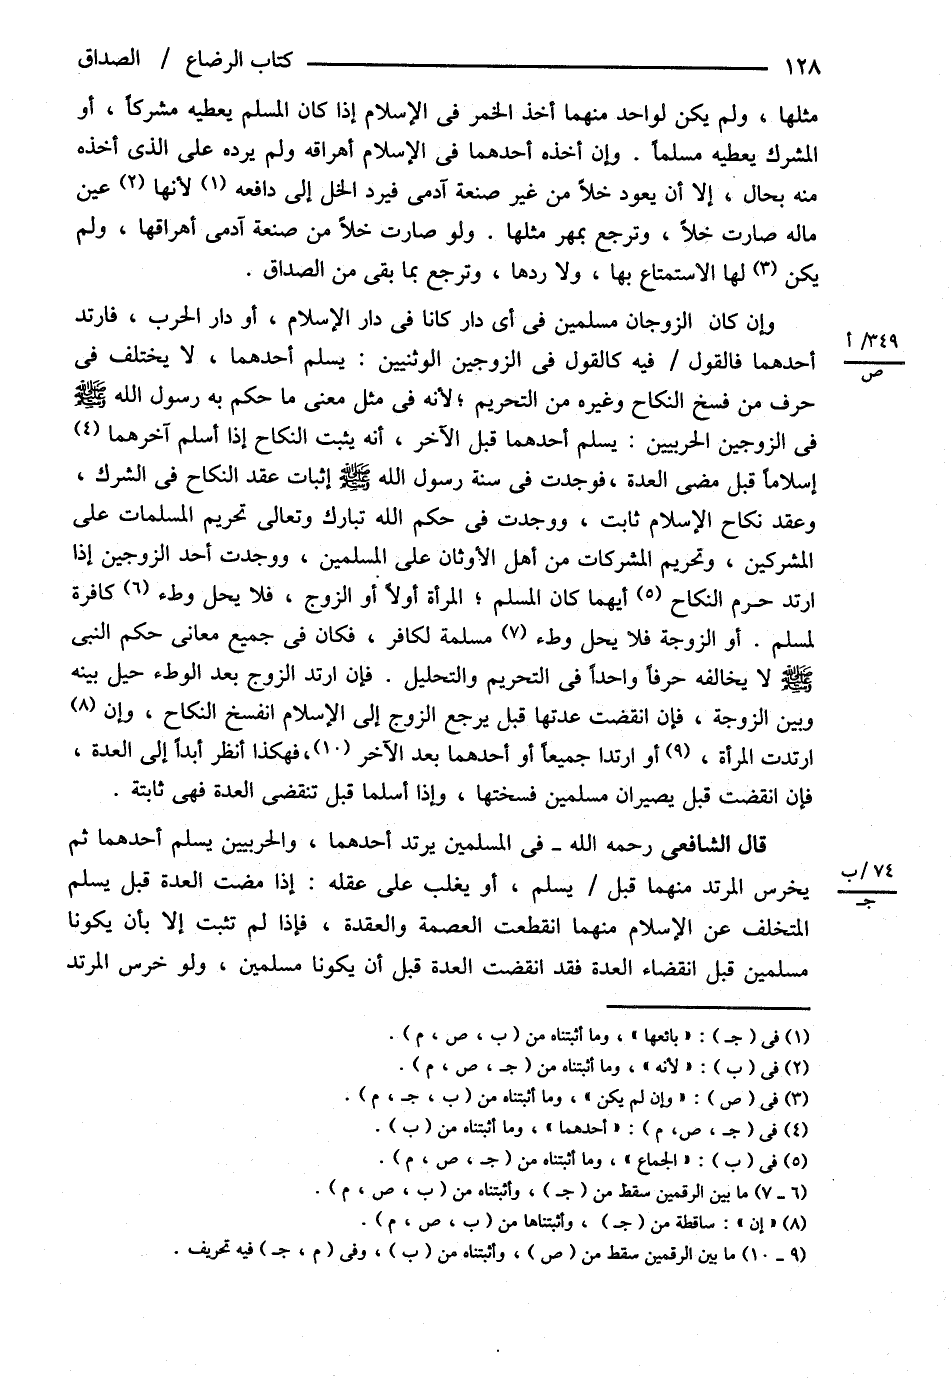 ١٢٨ ــــــــــ كتاب الرضاع / الصداق
مثلها ، ولم يكن لواحد منهما أخذ الخمر فى الإسلام إذا كان المسلم يعطيه مشركاً ، أو
المشرك يعطيه مسلماً . وإن أخذه أحدهما فى الإسلام أهراقه ولم يرده على الذى أخذه
منه بحال ، إلا أن يعود خلاً من غير صنعة آدمى فيرد الخل إلى دافعه (١) لأنها (٢) عين
ماله صارت خلاً ، وترجع بمهر مثلها . ولو صارت خلاً من صنعة آدمى أهراقها ، ولم
يكن (٣) لها الاستمتاع بها ، ولا ردها ، وترجع بما بقى من الصداق .
وإن كان الزوجان مسلمين فى أى دار كانا فى دار الإسلام ، أو دار الحرب ، فارتد
٣٤٩/ أ
ص
أحدهما فالقول / فيه كالقول فى الزوجين الوثنيين : يسلم أحدهما ، لا يختلف فى
حرف من فسخ النكاح وغيره من التحريم ؛ لأنه فى مثل معنى ما حكم به رسول الله ﷺ
فى الزوجين الحربيين : يسلم أحدهما قبل الآخر ، أنه يثبت النكاح إذا أسلم آخرهما (٤)
إسلاماً قبل مضى العدة ، فوجدت فى سنة رسول الله ﷺ إثبات عقد النكاح فى الشرك ،
وعقد نكاح الإسلام ثابت ، ووجدت فى حكم الله تبارك وتعالى تحريم المسلمات على
المشركين ، وتحريم المشركات من أهل الأوثان على المسلمين ، ووجدت أحد الزوجين إذا
ارتد حرم النكاح (٥) أيهما كان المسلم ؛ المرأة أولاً أو الزوج ، فلا يحل وطء (٦) كافرة
لمسلم . أو الزوجة فلا يحل وطء (٧) مسلمة لكافر ، فكان فى جميع معانى حكم النبى
ﷺ لا يخالفه حرفاً واحداً فى التحريم والتحليل . فإن ارتد الزوج بعد الوطء حيل بينه
وبين الزوجة ، فإن انقضت عدتها قبل يرجع الزوج إلى الإسلام انفسخ النكاح ، وإن (٨)
ارتدت المرأة ، (٩) أو ارتدا جميعاً أو أحدهما بعد الآخر (١٠)، فهكذا أنظر أبداً إلى العدة ،
فإن انقضت قبل يصيران مسلمين فسختها ، وإذا أسلما قبل تنقضى العدة فهى ثابتة .
قال الشافعى رحمه الله ـ فى المسلمين يرتد أحدهما ، والحربيين يسلم أحدهما ثم
٧٤/ب
جـ
يخرس المرتد منهما قبل / يسلم ، أو يغلب على عقله : إذا مضت العدة قبل يسلم
المتخلف عن الإسلام منهما انقطعت العصمة والعقدة ، فإذا لم تثبت إلا بأن يكونا
مسلمين قبل انقضاء العدة فقد انقضت العدة قبل أن يكونا مسلمين ، ولو خرس المرتد
(١) فى ( جـ ) : « بائعها » ، وما أثبتناه من ( ب ، ص ، م ) .
(٢) فى ( ب ) : « لأنه » ، وما أثبتناه من ( جـ ، ص ، م ) .
(٣) فى ( ص ) : « وإن لم يكن » ، وما أثبتناه من ( ب ، جـ ، م ) .
(٤) فى ( جـ ، ص، م ) : « أحدهما » ، وما أثبتناه من ( ب ) .
(٥) فى ( ب ) : « الجماع » ، وما أثبتناه من ( جـ ، ص ، م ) .
(٦ ـ ٧) ما بين الرقمين سقط من ( جـ ) ، وأثبتناه من ( ب ، ص ، م ) .
(٨) « إن » : ساقطة من ( جـ ) ، وأثبتناها من ( ب ، ص ، م ) .
(٩ ـ ١٠) ما بين الرقمين سقط من ( ص ) ، وأثبتناه من ( ب ) ، وفى ( م ، جـ ) فيه تحريف .